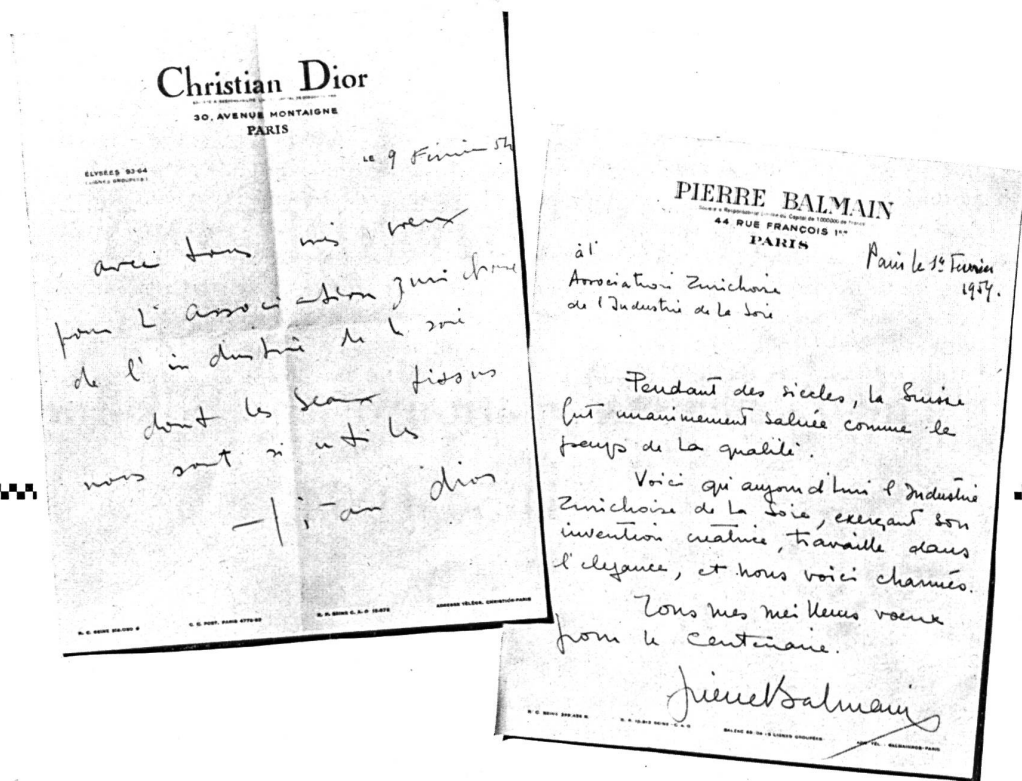 Christian Dior
30, AVENUE MONTAIGNE
PARIS
LE 9 Février 54
ÉLYSÉES 93-64
LIGNES GROUPÉES
avec tous mes vœux
pour l'association zurichoise
de l'industrie de la soie
dont les beaux tissus
nous sont si utiles
dior
C. C. POST. PARIS
ADRESSE TÉLÉGR. CHRISTIAN-PARIS
PIERRE BALMAIN
Société à Responsabilité Limitée au Capital de
44, RUE FRANÇOIS 1er
PARIS
Paris le Février
1954.
à l'
Association Zurichoise
de l'Industrie de la Soie
Pendant des siecles, la Suisse
fut unanimement saluée comme le
pays de la qualité.
Voici qu'aujourd'hui l'Industrie
Zurichoise de la Soie, exerçant son
invention créatrice, travaille dans
l'elegance, et nous voici charmés.
Tous mes meilleurs voeux
pour le Centenaire.
Pierre Balmain
LIGNES GROUPÉES
BALMAINIAS-PARIS